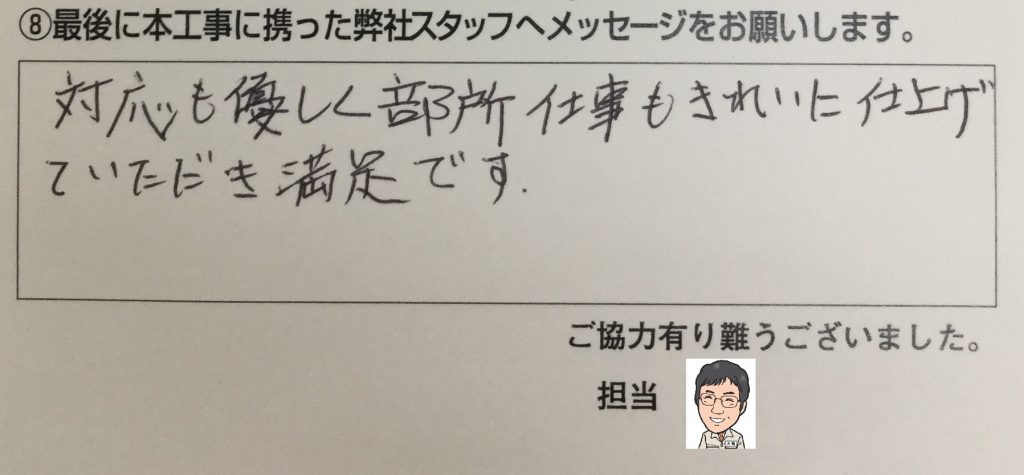 ⑧最後に本工事に携った弊社スタッフへメッセージをお願いします。
対応も優しく部所仕事もきれいに仕上げ
ていただき満足です.
ご協力有り難うございました。
担当